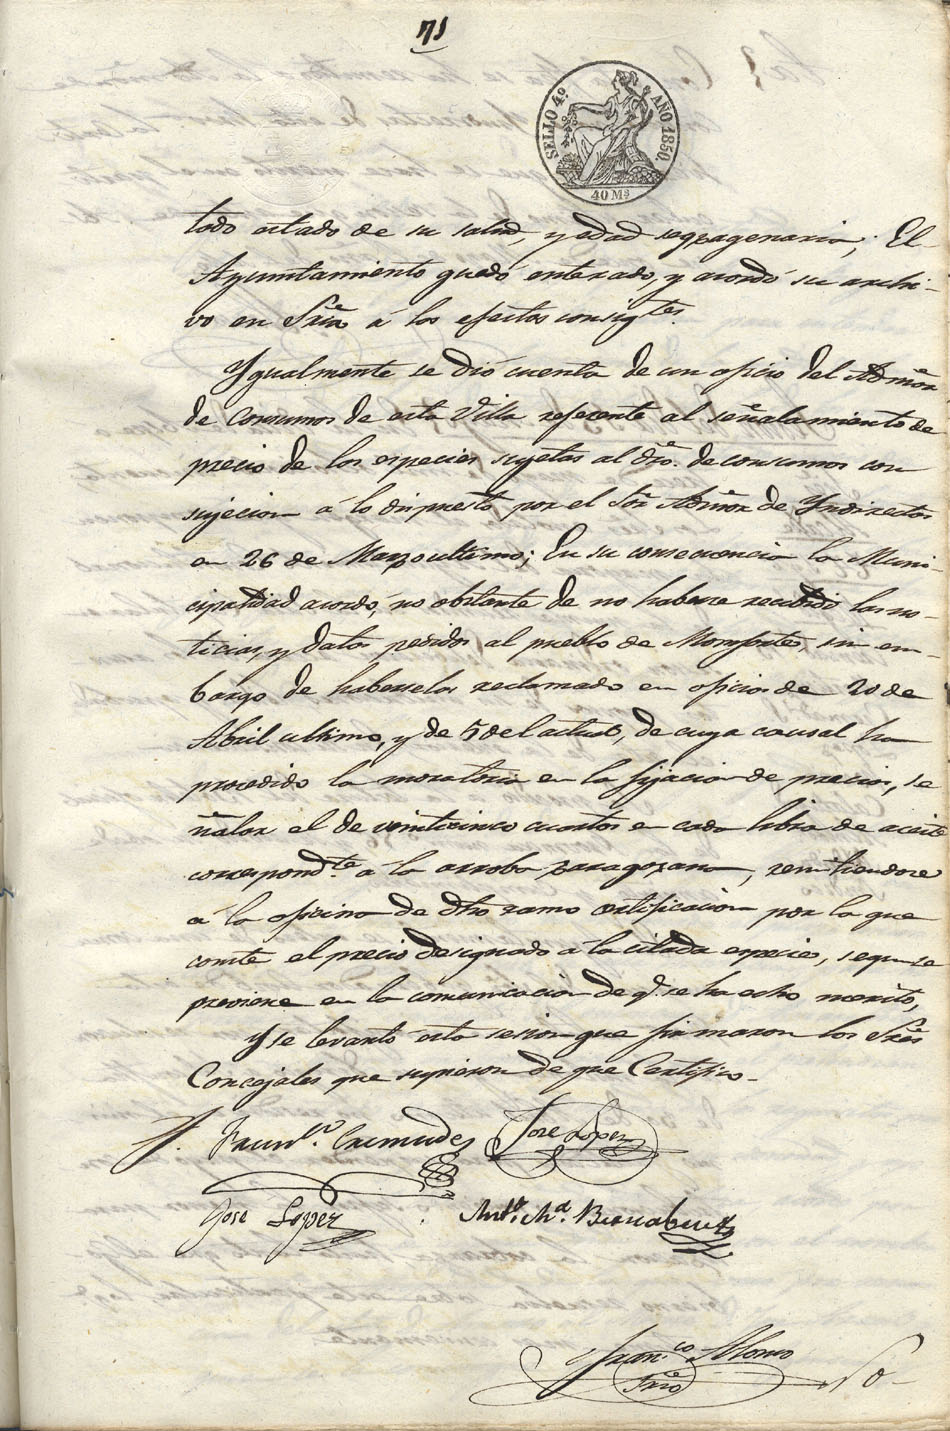 71
SELLO 4º AÑO 1850.
40 Ms
tado estado de su salud, y edad segsagenaria; El
Ayuntamiento quedó enterado, y acordó su archi-
vo en Sria á los efectos consigtes.
Ygualmente se dió cuenta de un oficio del Admor
de Consumos de esta Villa referente al señalamiento de
precio de las especies sujetas al dro. de consumos con
sujecion á lo dispuesto por el Sor Admor de Yndirectas
en 26 de Marzo ultimo; En su consecuencia la Muni-
cipalidad acordó, no obstante de no haberse recibido las no-
ticias, y datos pedidos al pueblo de Monforte, sin em-
bargo de haberselos reclamado en oficios de 20 de
Abril ultimo, y de 5 del actual, de cuya causal ha
procedido la moratoria en la fijacion de precios, se
ñalar el de veinticinco cuartos en cada libra de aceite
correspondte á la arroba zaragozana, remitiendose
á la oficina de dho ramo certificacion por la que
conste el precio designado á la citada especie, segun se
previene en la comunicacion de q. se ha echo merito,
Y se levantó esta sesion que firmaron los Sres
Concejales que supieron de que Certifico.-
Franco. Cremades José Lopez
José Lopez Anto. Ma. Bernabeu
Franco Alonso
Srio